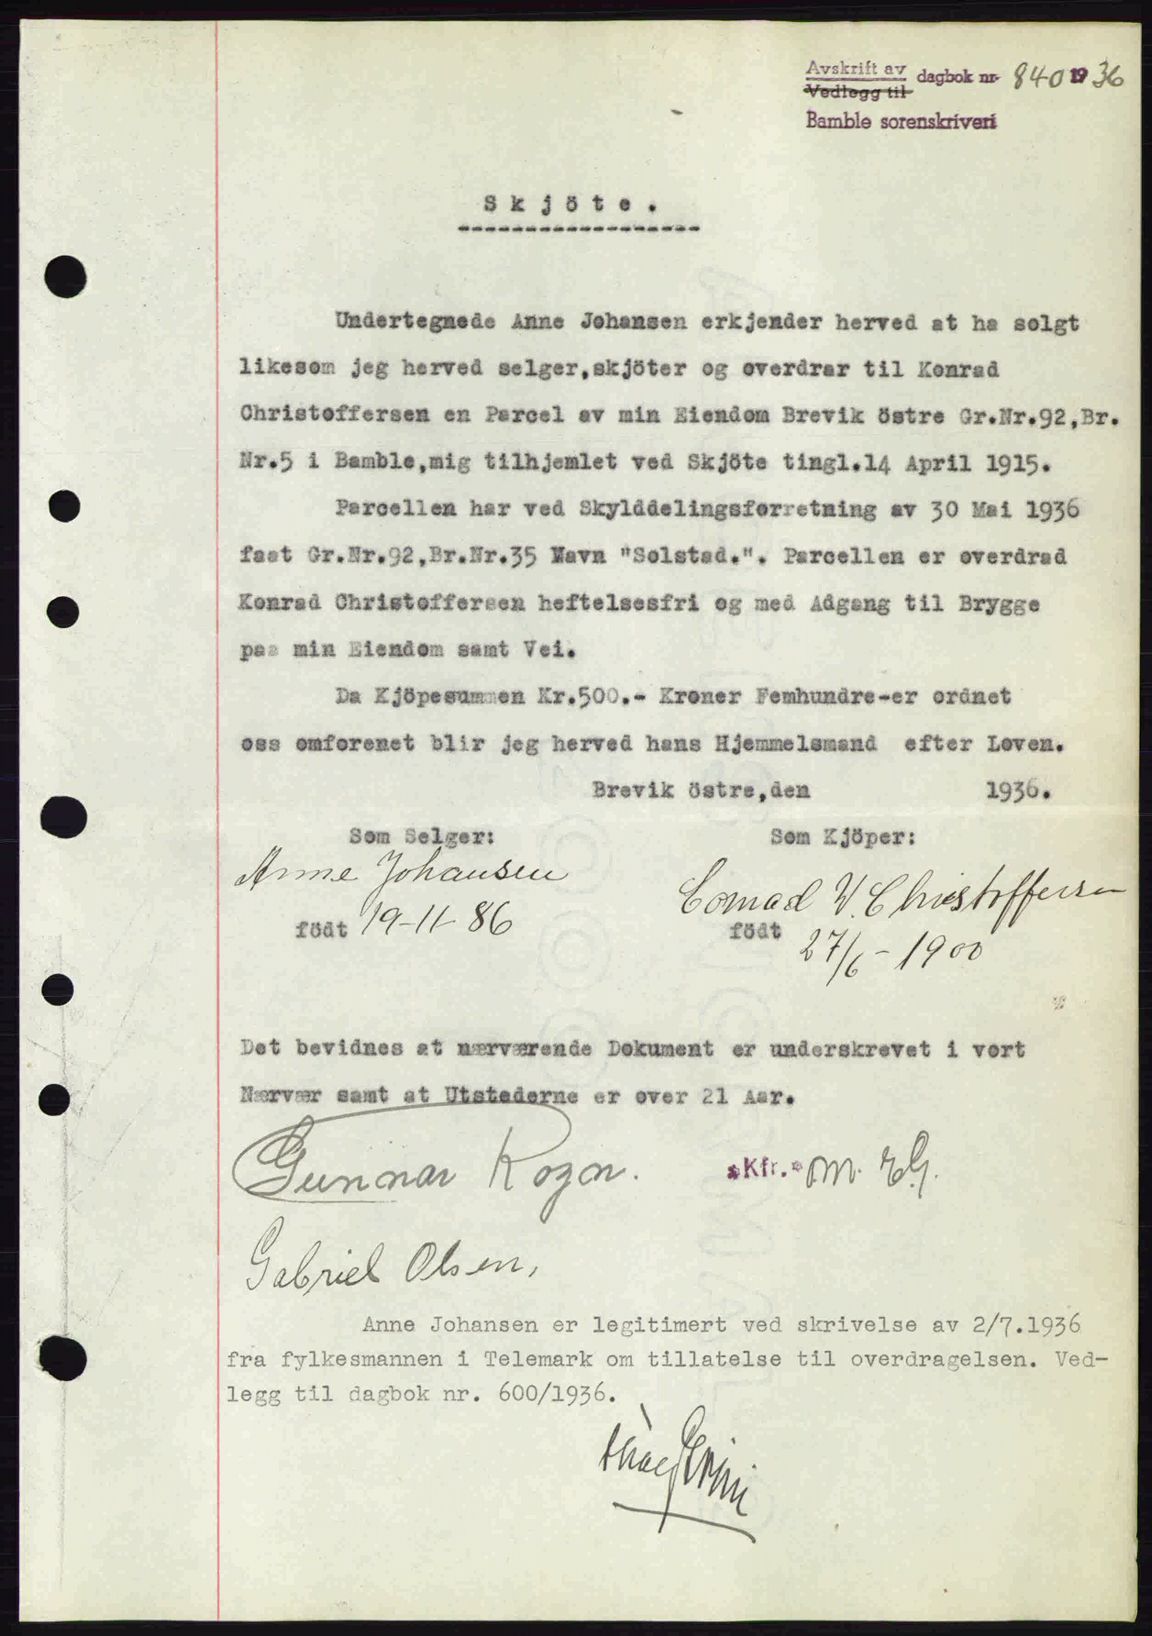 Avskrift av dagbok nr. 840 1936
Vedlegg til
Bamble sorenskriveri
Skjöte.
Undertegnede Anne Johansen erkjender herved at ha solgt
likesom jeg herved selger,skjöter og overdrar til Konrad
Christoffersen en Parcel av min Eiendom Brevik östre Gr.Nr.92,Br.
Nr.5 i Bamble,mig tilhjemlet ved Skjöte tingl.14 April 1915.
Parcellen har ved Skylddelingsforretning av 30 Mai 1936
faat Gr.Nr.92,Br.Nr.35 Navn "Solstad.". Parcellen er overdrad
Konrad Christoffersen heftelsesfri og med Adgang til Brygge
paa min Eiendom samt Vei.
Da Kjöpesummen Kr.500.- Kroner Femhundre-er ordnet
oss omforenet blir jeg herved hans Hjemmelsmand efter Loven.
Brevik östre,den 1936.
Som Selger: Som Kjöper:
Anne Johansen Conrad W. Christoffersen
födt 19-11-86 födt 27/6-1900
Det bevidnes at nærværende Dokument er underskrevet i vort
Nærvær samt at Utstederne er over 21 Aar.
Gunnar Rogn. Kfr.
Gabriel Olsen,
Anne Johansen er legitimert ved skrivelse av 2/7.1936
fra fylkesmannen i Telemark om tillatelse til overdragelsen. Ved-
legg til dagbok nr. 600/1936.